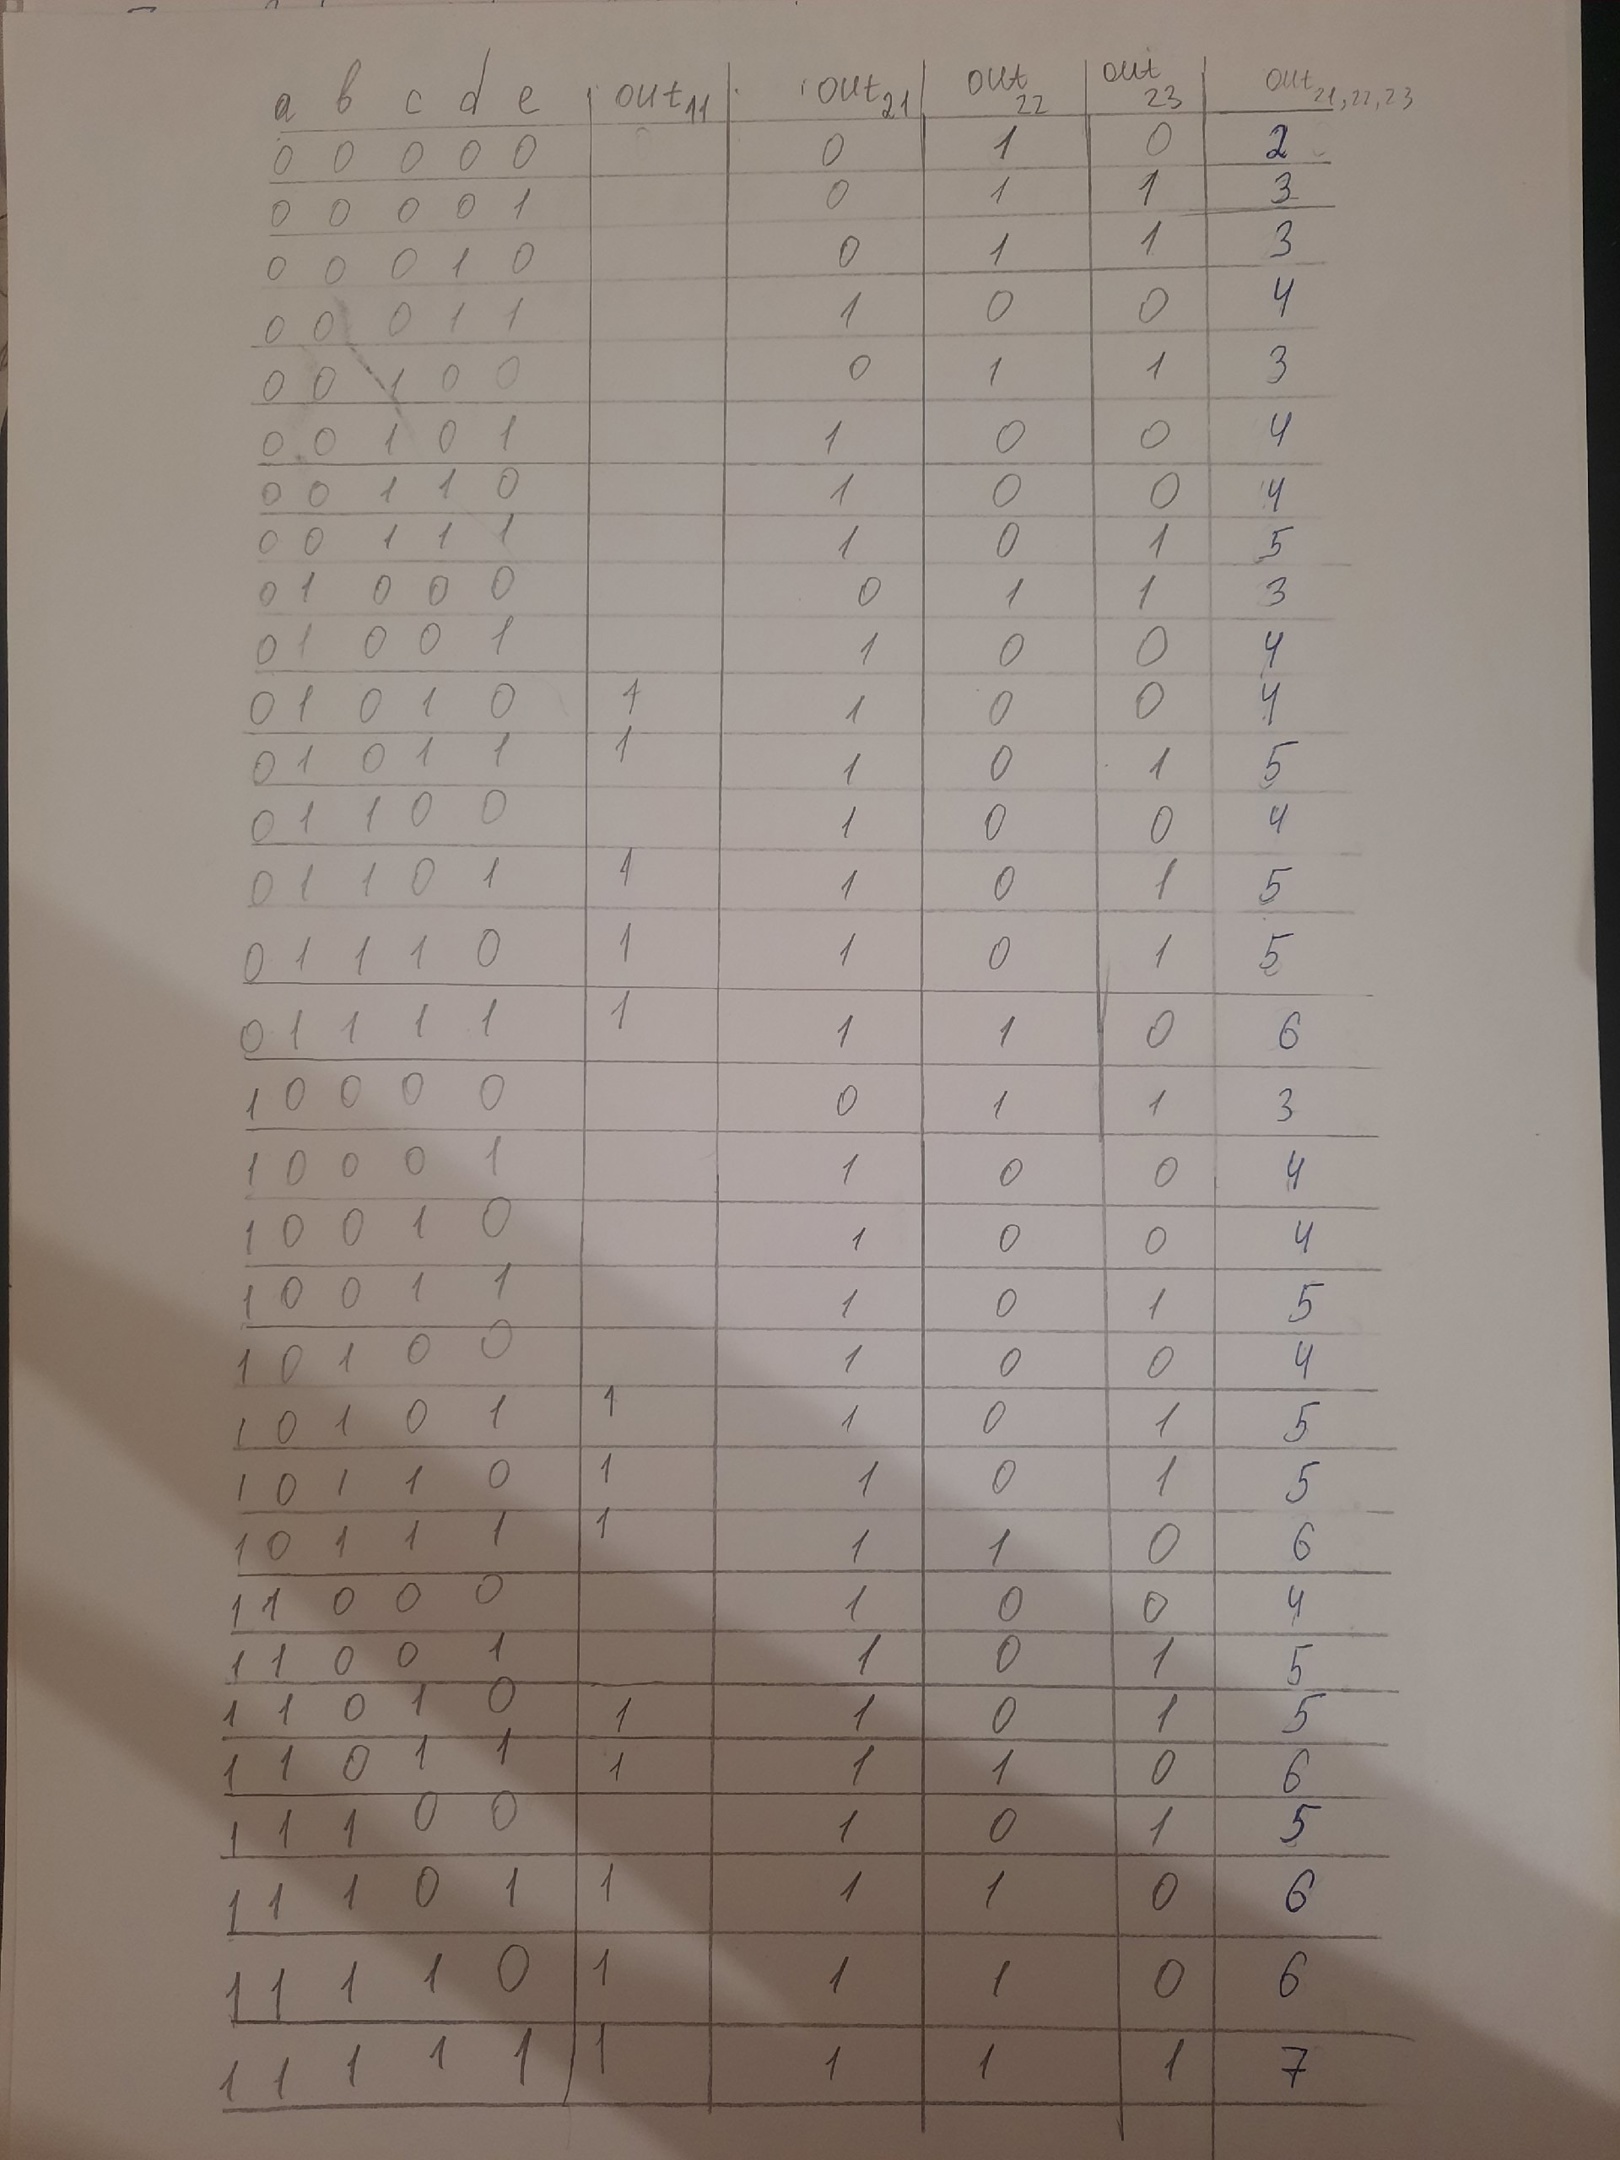 a b c d e out11 out21 out22 out23 out21,22,23
0 0 0 0 0 0 1 0 2
0 0 0 0 1 0 1 1 3
0 0 0 1 0 0 1 1 3
0 0 0 1 1 1 0 0 4
0 0 1 0 0 0 1 1 3
0 0 1 0 1 1 0 0 4
0 0 1 1 0 1 0 0 4
0 0 1 1 1 1 0 1 5
0 1 0 0 0 0 1 1 3
0 1 0 0 1 1 0 0 4
0 1 0 1 0 1 1 0 0 4
0 1 0 1 1 1 1 0 1 5
0 1 1 0 0 1 0 0 4
0 1 1 0 1 1 1 0 1 5
0 1 1 1 0 1 1 0 1 5
0 1 1 1 1 1 1 1 0 6
1 0 0 0 0 0 1 1 3
1 0 0 0 1 1 0 0 4
1 0 0 1 0 1 0 0 4
1 0 0 1 1 1 0 1 5
1 0 1 0 0 1 0 0 4
1 0 1 0 1 1 1 0 1 5
1 0 1 1 0 1 1 0 1 5
1 0 1 1 1 1 1 1 0 6
1 1 0 0 0 1 0 0 4
1 1 0 0 1 1 0 1 5
1 1 0 1 0 1 1 0 1 5
1 1 0 1 1 1 1 1 0 6
1 1 1 0 0 1 0 1 5
1 1 1 0 1 1 1 1 0 6
1 1 1 1 0 1 1 1 0 6
1 1 1 1 1 1 1 1 1 7